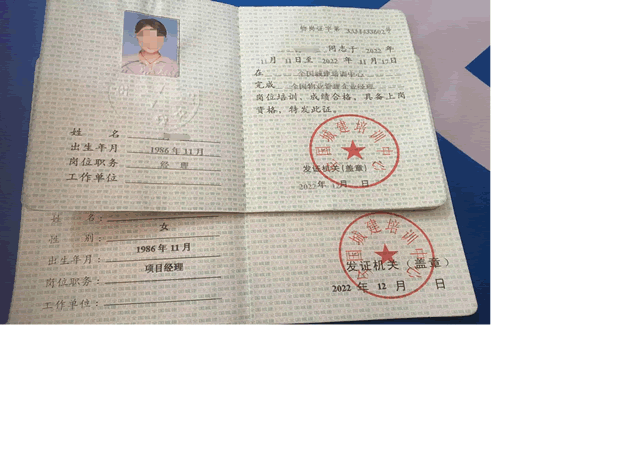 姓 名
出生年月 1986 年 11 月
岗位职务 经 理
工作单位
同志于 2022 年
11月 11日至 2022 年 11 月 17日
在 全国城建培训中心
完成 全国物业管理企业经理
岗位培训，成绩合格，具备上岗
资格，特发此证。
全国城建培训中心
发证机关(盖章)
2022年 12月 日
姓 名：
性 别： 女
出生年月： 1986 年 11 月
岗位职务： 项目经理
工作单位：
全国城建培训中心
发证机关（盖章）
2022 年 12 月 日